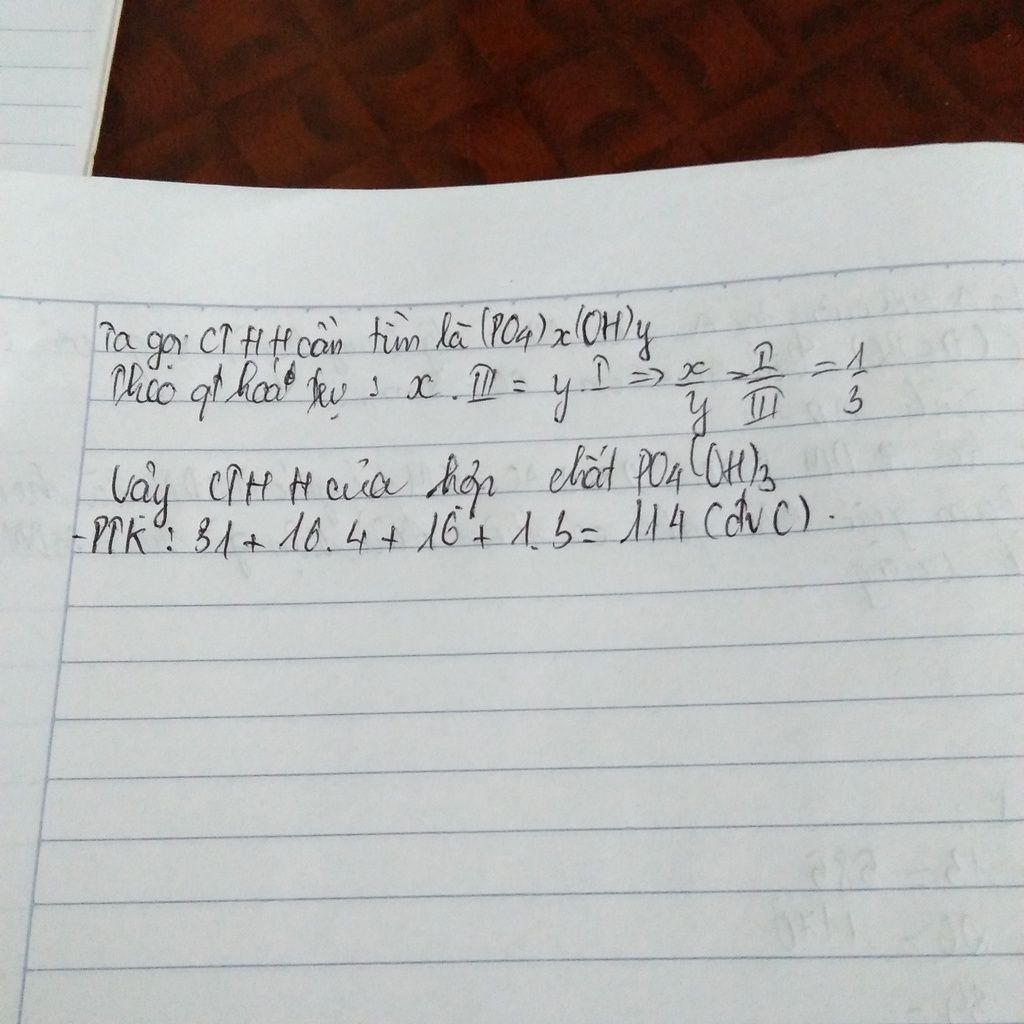 Ta gọi CTHH cần tìm là (PO4)x(OH)y
Theo qt hoá trị : x . III = y . I => x/y = I/III = 1/3
Vậy CTHH của hợp chất PO4(OH)3
- PTK : 31 + 16 . 4 + 16 + 1 . 3 = 114 (đvC) .